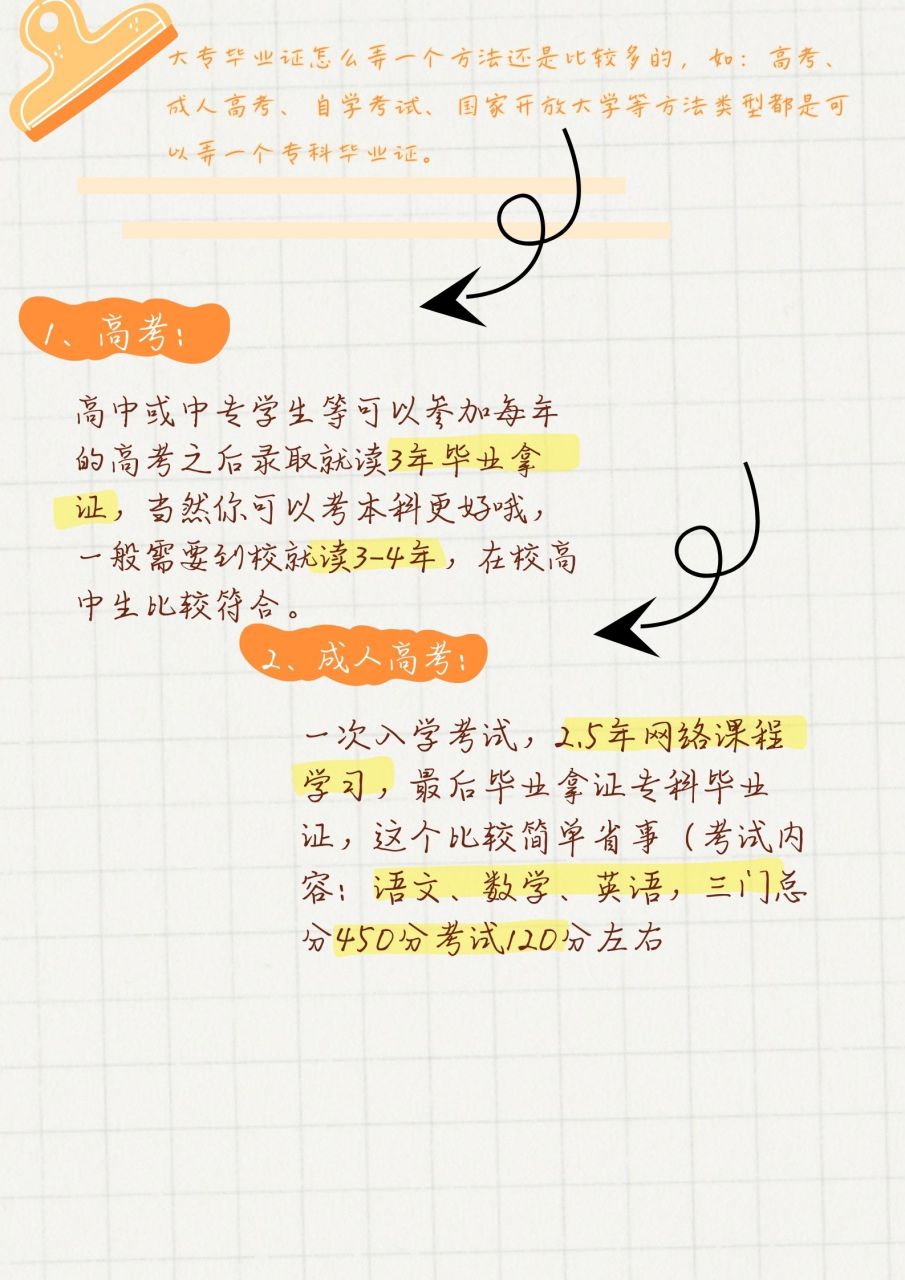 大专毕业证怎么弄一个方法还是比较多的，如：高考、
成人高考、自学考试、国家开放大学等方法类型都是可
以弄一个专科毕业证。
1、高考：
高中或中专学生等可以参加每年
的高考之后录取就读3年毕业拿
证，当然你可以考本科更好哦，
一般需要到校就读3-4年，在校高
中生比较符合。
2、成人高考：
一次入学考试，2.5年网络课程
学习，最后毕业拿证专科毕业
证，这个比较简单省事（考试内
容：语文、数学、英语，三门总
分450分考试120分左右